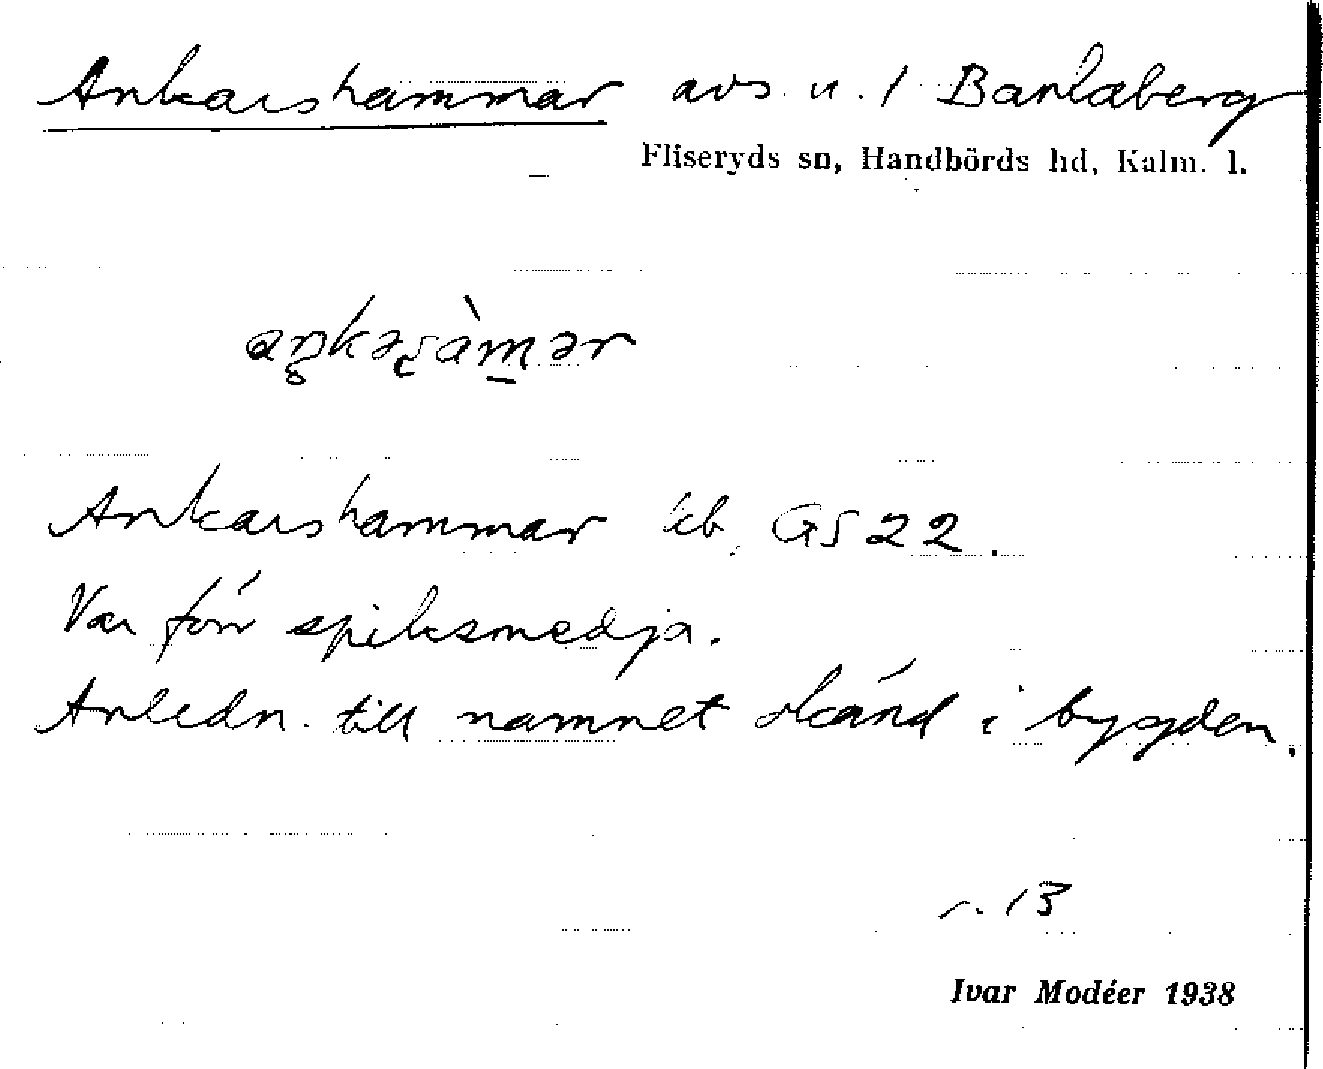 Ankarshammar avs. u. 1 Barlaberg
Fliseryds sn, Handbörds hd, Kalm. l.
Ankarshammar kb, GS 22.
Var förr spiksmedja.
Anledn. till namnet okänd i bygden.
r. 13
Ivar Modéer 1938